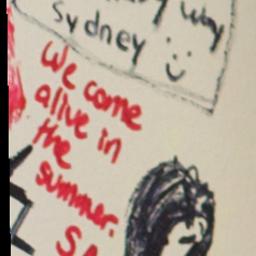 way
Sydney
We come
alive in
the
summer.